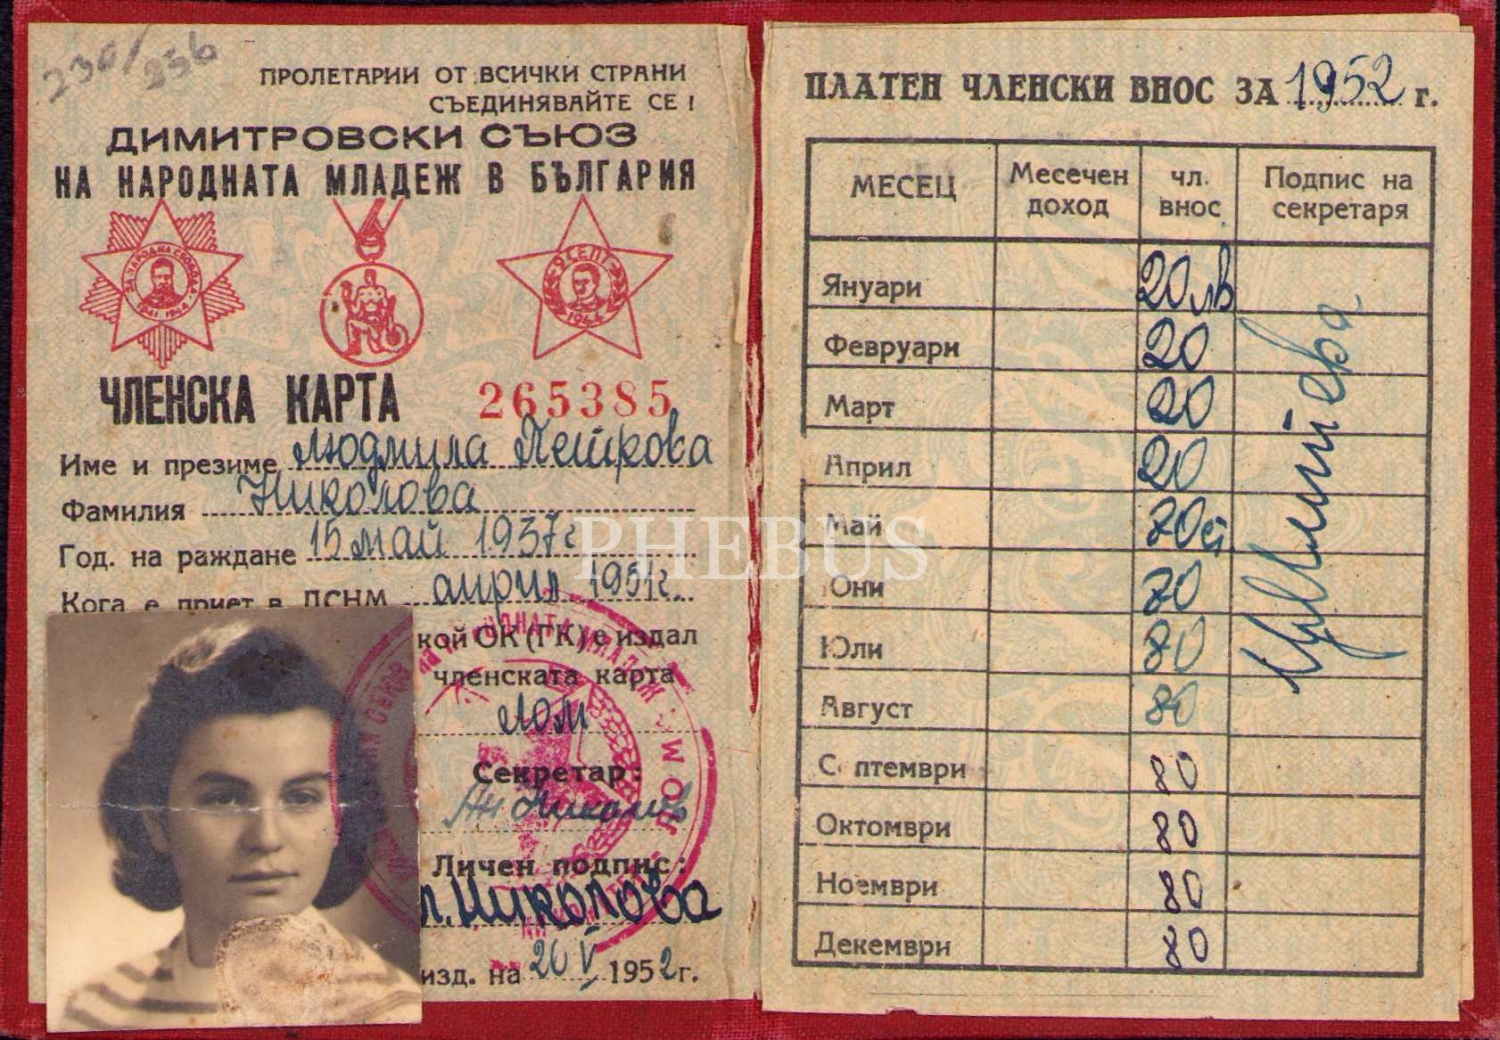 230/256
ПРОЛЕТАРИИ ОТ ВСИЧКИ СТРАНИ
СЪЕДИНЯВАЙТЕ СЕ!
ДИМИТРОВСКИ СЪЮЗ
НА НАРОДНАТА МЛАДЕЖ В БЪЛГАРИЯ
ЗА НАРОДНА СВОБОДА
1941-1944
9 СЕПТ.
1944
ЧЛЕНСКА КАРТА 265385
Име и презиме Людмила Петкова
Фамилия Николова
Год. на раждане 15 май 1937 г
Кога е приет в ДСНМ април 1951 г.
кой ОК (ГК) е издал
членската карта
Лом
Секретар:
Личен подпис:
Л. Николова
изд. на 20 V 1952 г.
ПЛАТЕН ЧЛЕНСКИ ВНОС ЗА 1952 г.
МЕСЕЦ Месечен доход чл. внос Подпис на секретаря
Януари 20 лв
Февруари 20
Март 20
Април 20
Май 70 ст
Юни 70
Юли 80
Август 80
Септември 80
Октомври 80
Ноември 80
Декември 80
PHEBUS